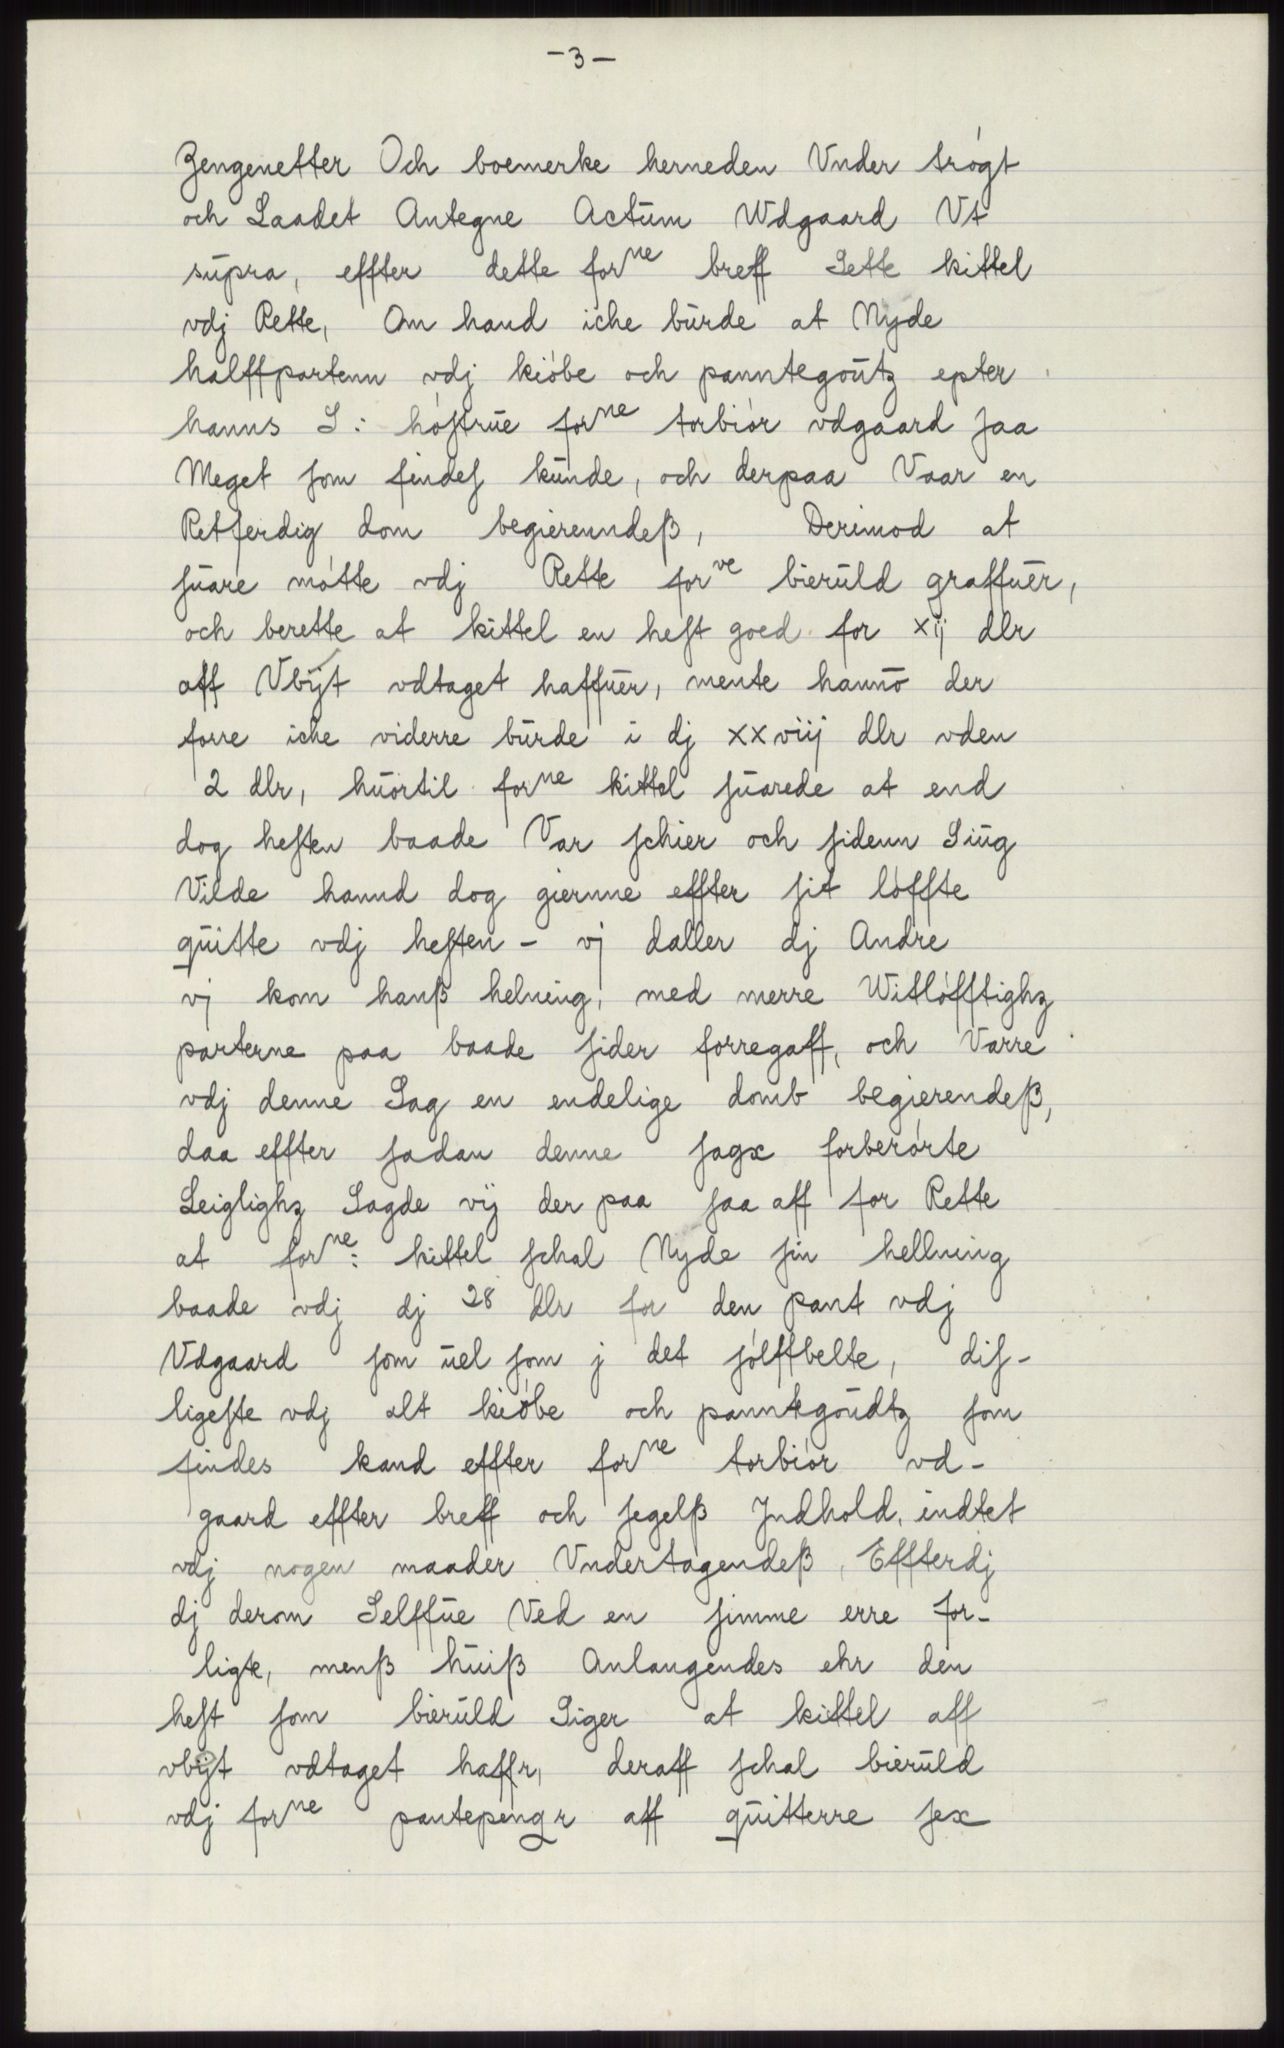 -3-
Zengenetter Och boemerke herneden Vnder trögt
och Laadet Antegne Actum Wdgaard Vt
supra, effter dette forne breff Sette kittel
vdj Rette, Om hand iche burde at Nyde
halffpartenn vdj kiöbe och panntegoutz epter
hanns S: höstrue forne torbiör vdgaard saa
Meget som findes kunde, och derpaa Vaar en
Retferdig dom begierenndeß, Derimod at
suare mötte vdj Rette forve bieruld graffuer,
och berette at kittel en hest goed for xij dlr
aff Vbijt vdtaget haffuer, mente hanno der
forre iche viderre burde i dj xxviij dlr vden
2 dlr, huortil forne kittel suarede at end
dog hesten baade Var schier och sidenn Siug
Vilde hannd dog giernne effter sit löffte
quitte vdj hesten - vj daller dj Andre
vj kom hanß helning, med merre Witlöfftighz
parterne paa baade sider forregaff, och Varre
vdj denne Sag en endelige domb begierendeß,
daa effter sadan denne sagx forberörte
Leiglighz Sagde vij der paa saa aff for Rette
at forne: kittel schal Nyde sin hellning
baade vdj dj 28 dlr for den pant vdj
Vdgaard som uel som j det sölffbelte, dis-
ligeste vdj alt kiöbe och panntegoudtz som
findes kand effter forne torbiör vd-
gaard effter breff och segelß Jndhold, indtet
vdj nogen maader Vndertagendeß, Effterdj
dj derom Selffue Ved en simme erre for-
ligte, menß huiß Anlangendes ehr den
hest som bieruld Siger at kittel aff
vbijt vdtaget haffr, deraff schal bieruld
vdj forne pantepengr aff quitterre sex